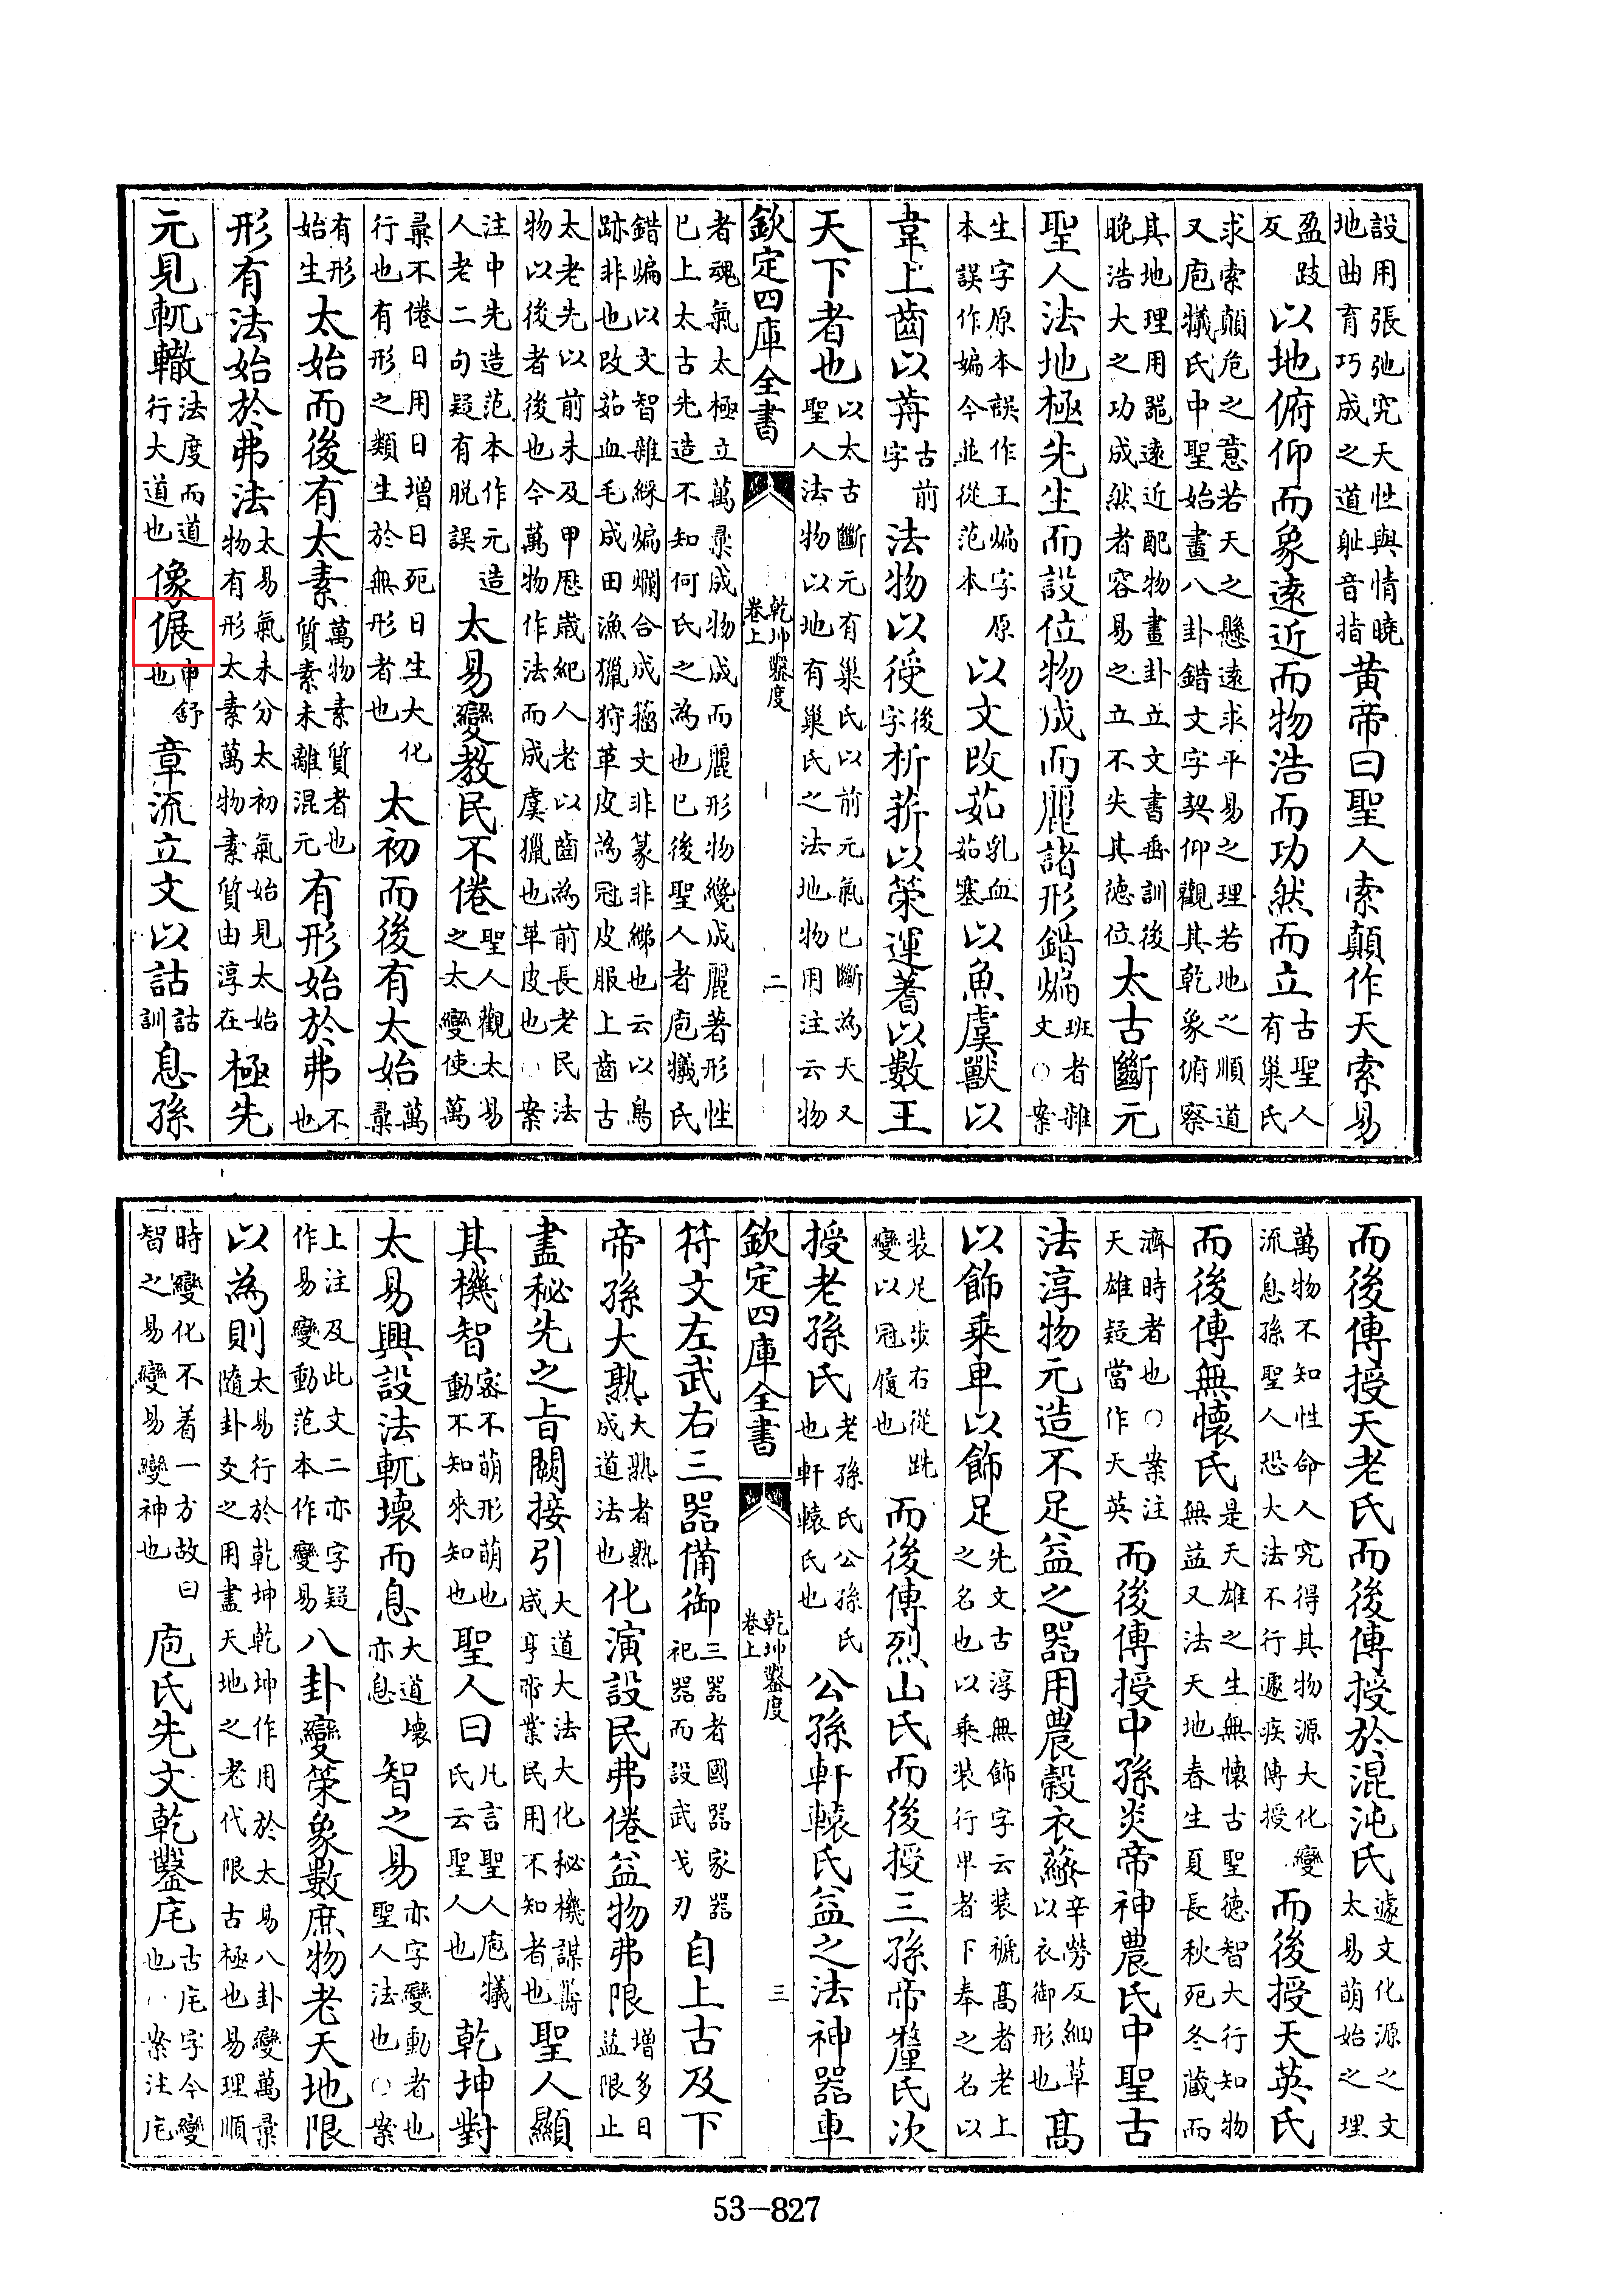 設用張弛究天性與情曉地曲育巧成之道耻音指黃帝曰聖人索顛作天索易
盈跂反以地俯仰而象遠近而物浩而功然而立古聖人有巢氏
求索顛危之意若天之懸遠求平易之理若地之順道又庖犧氏中聖始畫八卦錯文字契仰觀其乾象俯察
其地理用遠近配物畫卦立文書垂訓後晚浩大之功成然者容易之立不失其德位太古斷元
聖人法地極先生而設位物成而麗諸形錯煸班者雜文○案
生字原本誤作王煸字原本誤作媥今並從范本以文改茹乳血茹塞以魚虞獸以
韋上齒以古前字法物以後字析菥以策運蓍以數王
天下者也以太古斷元有巢氏以前元氣已斷為大又聖人法物以地有巢氏之法地物用注云物
欽定四庫全書
乾坤鑿度
卷上
二
者魂氣太極立萬彚成物成而麗形物纔成麗著形性已上太古先造不知何氏之為也已後聖人者庖犧氏
錯煸以文智雜綵煸斕合成籀文非篆非也云以鳥跡非也改茹血毛成田漁獵狩革皮為冠皮服上齒古
太老先以前未及甲厯歲紀人老以齒為前長老民法物以後者後也今萬物作法而成虞獵也革皮也○案
注中先造范本作元造人老二句疑有脱誤太易變教民不倦聖人觀太易之太變使萬
彚不倦日用日增日死日生大化行也有形之類生於無形者也太初而後有太始萬彚
有形始生太始而後有太素萬物素質者也質素未離混元有形始於弗不也
形有法始於弗法太易氣未分太初氣始見太始物有形形太素萬物素質由淳在極先
元見軏轍法度而道行大道也像申舒也章流立文以詁詁訓息孫
而後傳授天老氏而後傳授於混沌氏遽文化源之文太易萌始之理
萬物不知性命人究得其物源大化變流息孫聖人恐大法不行遽疾傳授而後授天英氏
而後傳無懷氏是天雄之生無懷古聖德智大行知物無益又法天地春生夏長秋死冬藏而
濟時者也○案注天雄疑當作天英而後傳授中孫炎帝神農氏中聖古
法淳物元造不足益之器用農穀衣蕬辛勞反細草以衣御形也高
以飾乘車以飾足先文古淳無飾字云裝褫高者老上之名也以乘裝行卑者下奉之名以
裝足步右從跣變以冠履也而後傳烈山氏而後授三孫帝釐氏次
授老孫氏老孫氏公孫氏也軒轅氏也公孫軒轅氏益之法神器車
欽定四庫全書
乾坤鑿度
卷上
三
符文左武右三器備御三器者國器家器祀器而設武戈刃自上古及下
帝孫大熟大熟者熟成道法也化演設民弗倦益物弗限增多日益限止
盡秘先之旨闕接引大道大法大化秘機謀籌咸亨帝業民用不知者也聖人顯
其機智密不萌形萌也動不知來知也聖人曰凡言聖人庖犧氏云聖人也乾坤對
太易興設法軏壞而息大道壞亦息智之易亦字變動者也聖人法也○案
上注及此文二亦字疑作易變動范本作變易八卦變策象數庶物老天地限
以為則太易行於乾坤乾坤作用於太易八卦變萬彚隨卦爻之用盡天地之老代限古極也易理順
時變化不着一方故曰智之易變易變神也庖氏先文乾鑿庑古庑字今變也○案注庑
53—827